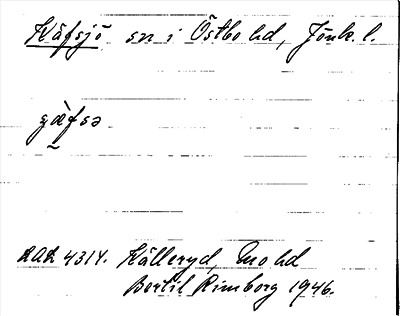 Käfsjö sn i Östbo hd, Jönk. l.
gæ̀fsə
LAL 4314. Källeryd, Mo hd
Bertil Rimborg 1946.